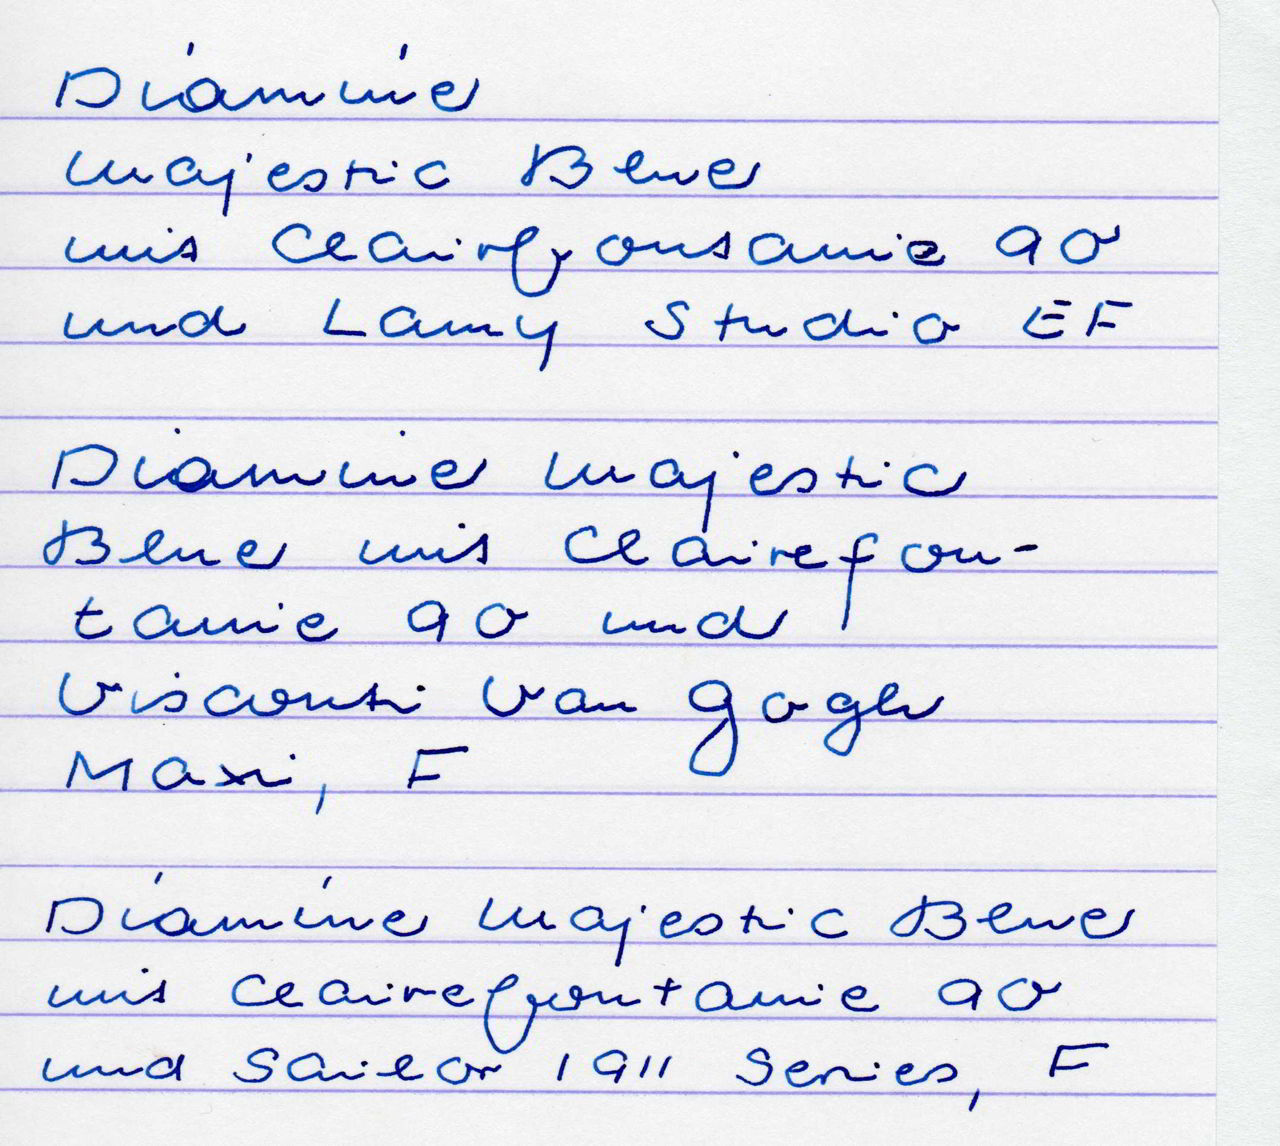 Diamine
Majestic Blue
mit Clairefontaine 90
und Lamy Studio EF
Diamine Majestic
Blue mit Clairefon-
taine 90 und
Visconti Van Gogh
Maxi, F
Diamine Majestic Blue
mit Clairefontaine 90
und Sailor 1911 Series, F